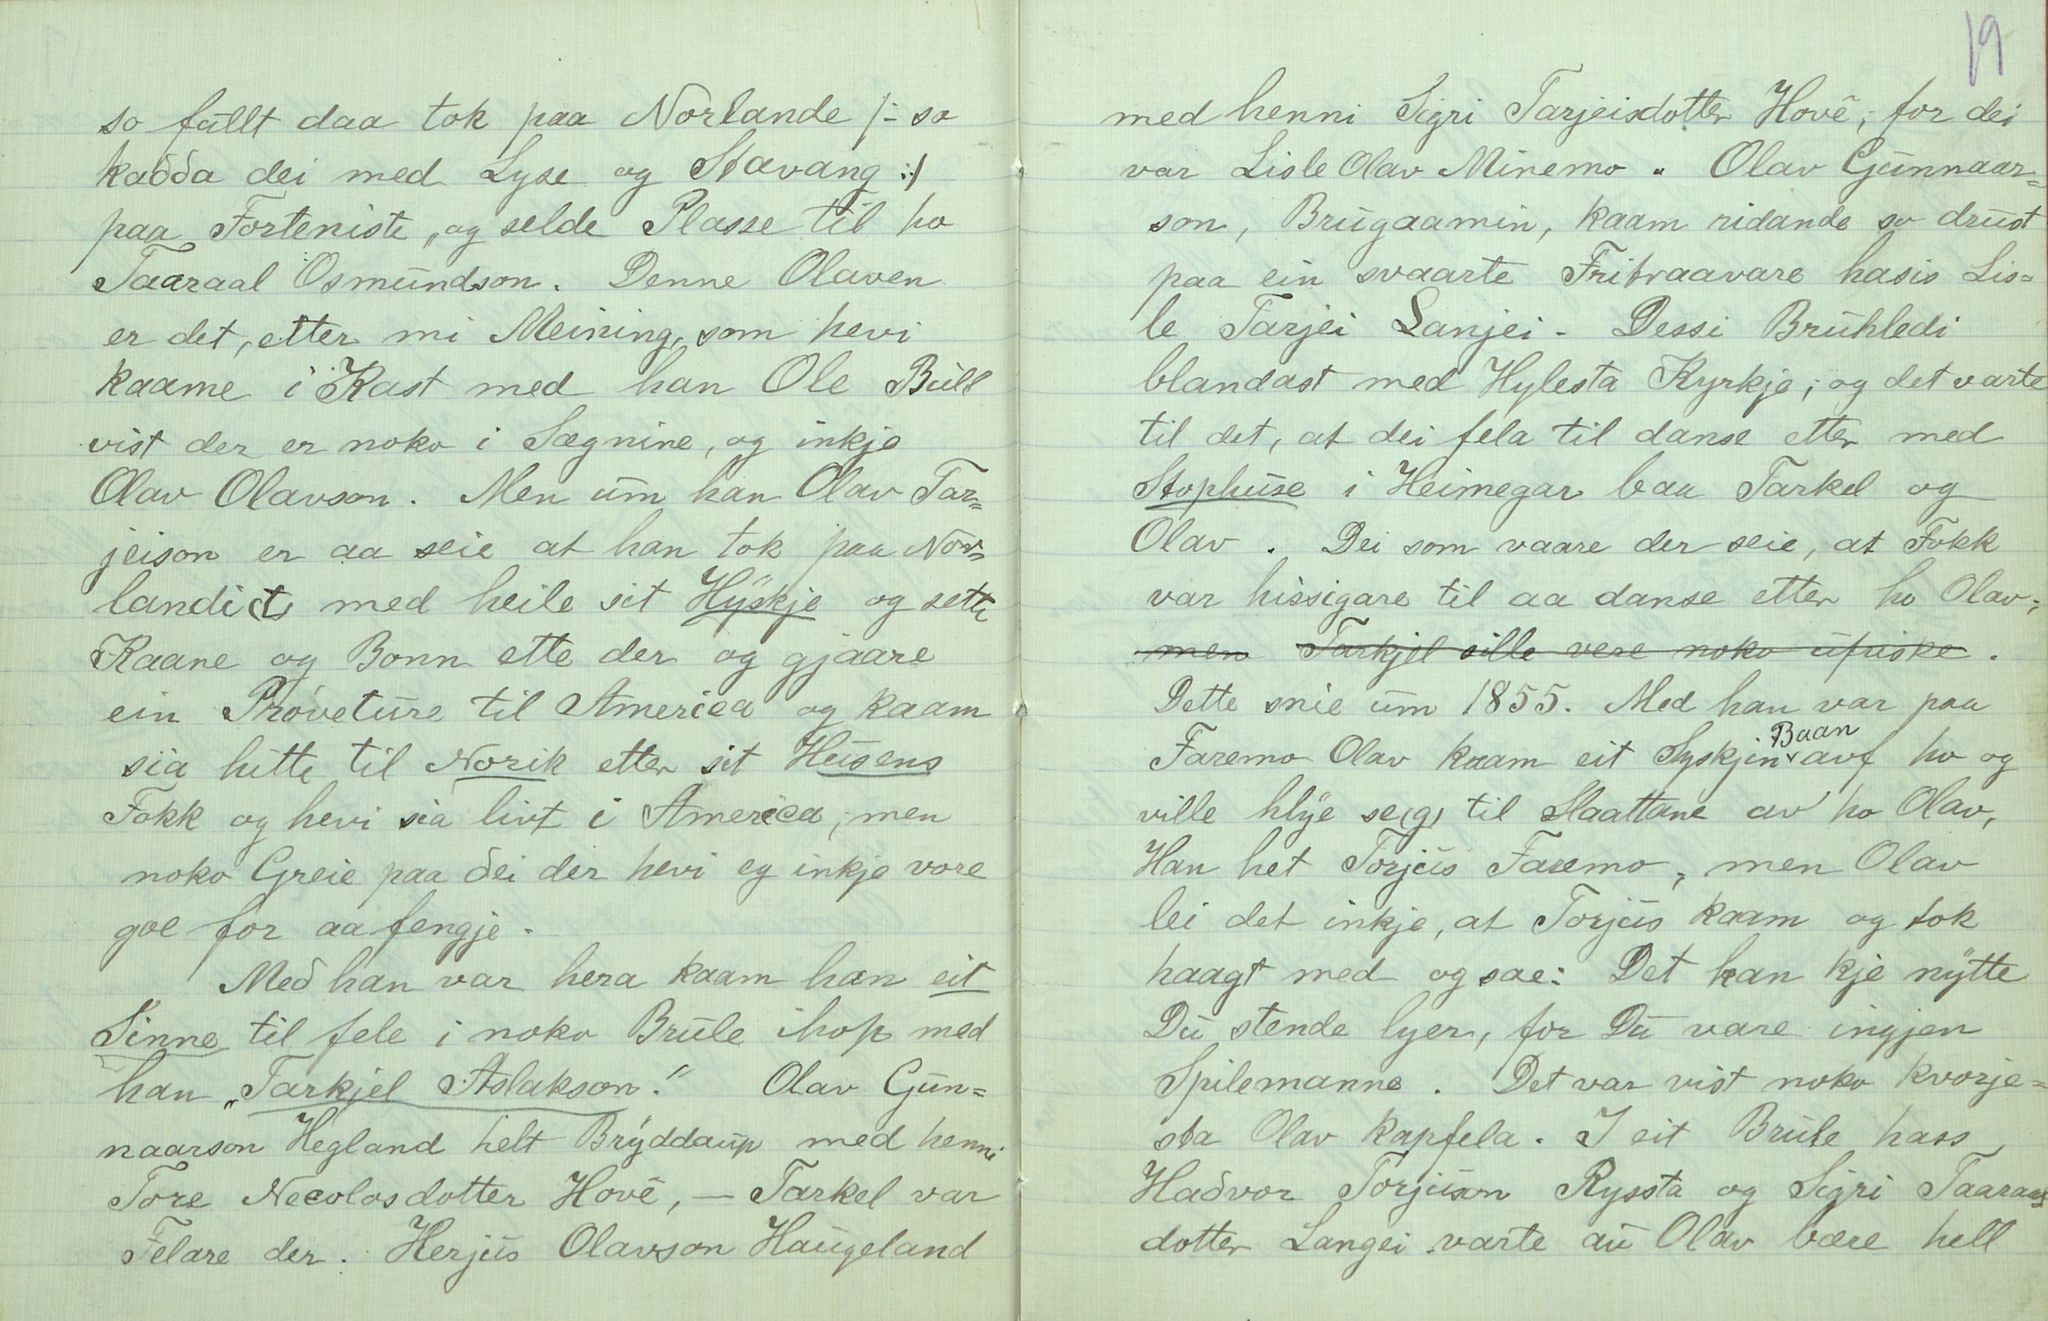 so fullt daa tok paa Norlande /:- so
kadda dei med Lyse og Stavang :/
paa Forteniste, og selde Plasse til ho
Taaraal Osmundson. Denne Olaven
er det, etter mi Meining, som hevi
kaame i Kast med han Ole Bull
vist der er noko i Sægnine, og inkje
Olav Olavson. Men um han Olav Tar=
jeison er aa seie at han tok paa Nor=
landi(t) med heile sit Hyskje og sette
Kaane og Bonn ette der og gjaare
ein Próveture til America og kaam
sia hitte til Norik etter sit Husens
Fokk og hevi sia livt i America; men
noko Greie paa ðei der hevi eg inkje vore
goe for aa fengje.
Með han var hera kaam han eit
Sinne til fele i noko Brule ihop med
han "Tarkjel Aslakson." Olav Gun=
naarson Hegland helt Brýddaup med henni
Tore Necolosdotter Hovê, — Tarkel var
Felare der. Herjus Olavson Haugeland
19
med henni Sigri Tarjeisdotter Hovê; for dei
var Lisle Olav Minemo. Olav Gunnaar=
son, Brugaamin, kaam ridande so drust
paa ein svaarte Fribraavare hasis Lis=
le Tarjei Lanjei - Dessi Bruhledi
blandast med Hylesta Kyrkje; og det varte
til det, at dei fela til danse etter med
Stophuse i Heimegar baa Tarkel og
Olav. Dei som vaare der seie, at Fokk
var hissigare til aa danse etter ho Olav;
men Tarkjel sille vere noko ufriske.
Dette snie um 1855. Med han var paa
Faremo Olav kaam eit Syskjin Baan avf ho og
ville hlye se(g) til Slaattane av ho Olav,
Han het Torjus Faremo; men Olav
lei det inkje, at Torjus kaam og tok
haagt med og sae: Det kan kje nytte
Du stende lyer, for Du vare ingjen
Spilemanne. Det var vist noko kvorje=
sta Olav kapfela. I eit Brule hass
Haðvor Torjuson Ryssta og Sigri Taaraals
dotter Langei varte au Olav bære hell